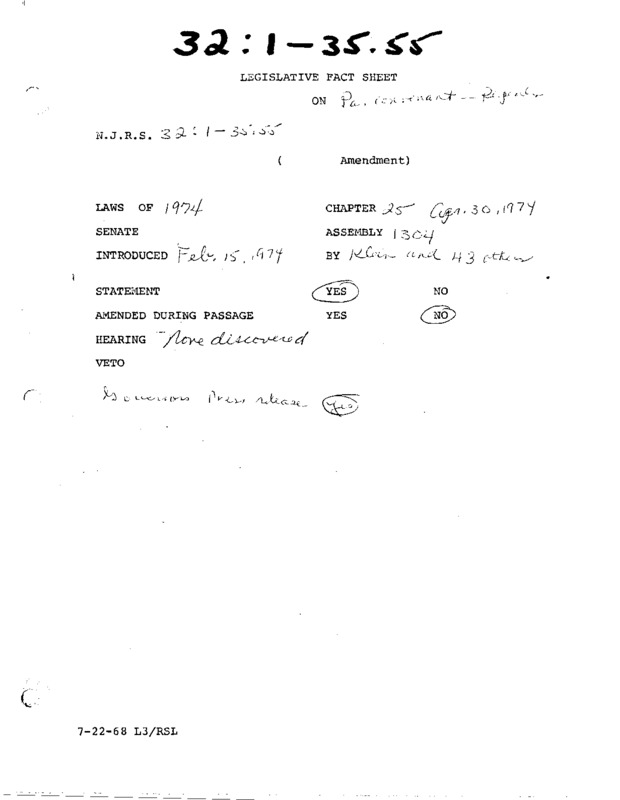 32:1-35.55
LEGISLATIVE FACT SHEET
ON Pa. convenant -- Repeals
N.J.R.S. 32:1-35.55
( Amendment)
LAWS OF 1974 CHAPTER 25 Apr. 30, 1974
SENATE ASSEMBLY 1304
INTRODUCED Feb. 15, 1974 BY Klein and 43 others
STATEMENT YES NO
AMENDED DURING PASSAGE YES NO
HEARING None discovered
VETO
Governors Press release Yes
7-22-68 L3/RSL